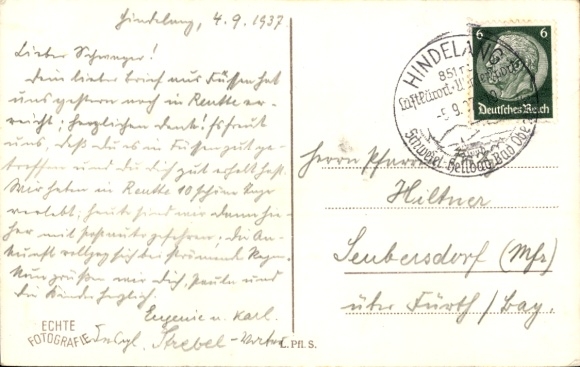 Hindelang, 4.9.1937
Lieber Schwager!
Dein lieber Brief aus Füssen hat
uns gestern noch in Reutte er-
reicht; herzlichen Dank! Es freut
uns, daß du es in Füssen gut ge-
troffen und du dich gut erholt hast.
Wir haben in Reutte 10 schöne Tage
verlebt; heute sind wir dann hie-
her mit Postauto gefahren; die An-
kunft vollzog sich bei strömend Regen.
Nun grüßen wir dich, Paula und
die Kinder herzlich,
Eugenie u. Karl.
Strebel
ECHTE
FOTOGRAFIE
L. Pfl. S.
HINDELANG
Luftkurort
Schwefel-Heilbad Bad Obe
6 6
Deutsches Reich
Herrn Pfarrer
Hiltner
Seubersdorf (Mfr)
über Fürth / Bay.